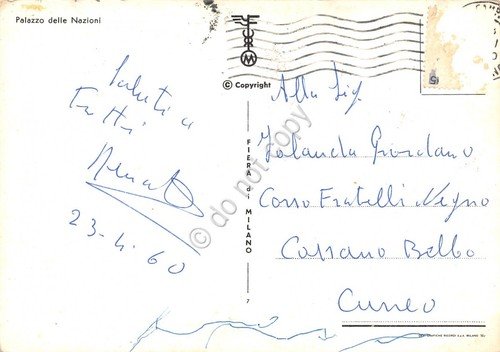 Palazzo delle Nazioni
© Copyright
Saluti a
Tutti
Renato
23-4-60
FIERA di MILANO
7
Alla Sig.
Jolanda Giordano
Corso Fratelli Negno
Cossano Belbo
Cuneo
do not copy